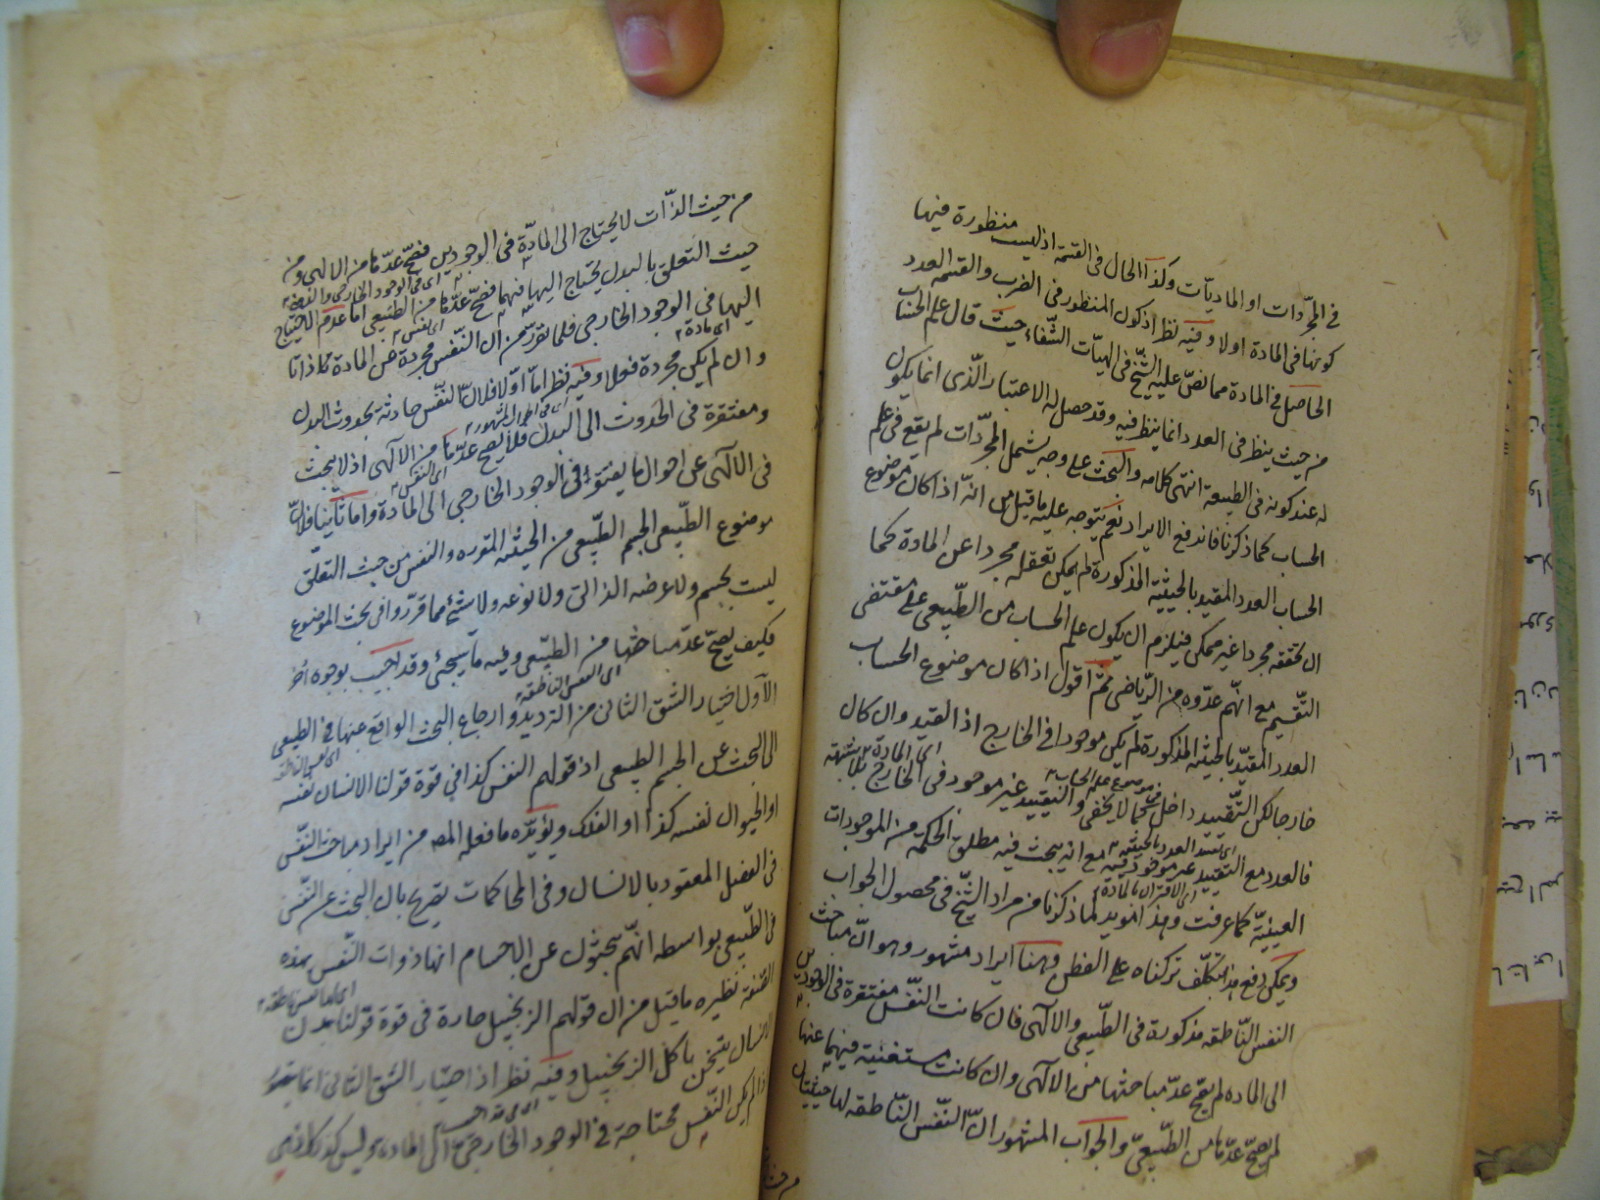 في المجرّدات او الماديّات وكذا الحال في القسمة اذ ليست منظورة فيها
كونها في المادة اولا وفيه نظر اذ كون المنظور في الضرب والقسمة العدد
الحاصل في المادة مما نصّ عليه الشّيخ في الهيّات الشّفاء حيث قال علم الحساب
من حيث ينظر في العدد انما ينظر فيه وقد حصل له الاعتبار الّذى انما يكون
له عند كونه في الطبيعة انتهى كلامه والبحث على وجه يشمل المجرّدات لم يقع في علم
الحساب كما ذكرنا فاندفع الايراد نعم يتوجه عليه ما قيل من انّه اذا كان موضوع
الحساب العدد المقيد بالحيثية المذكورة لم يمكن تعقله مجردا عن المادة كما
ان تحققه مجردا غير ممكن فيلزم ان يكون علم الحساب من الطّبيعى على مقتضى
التّقسيم مع انّهم عدّوه من الرّياضى ثمّ اقول اذا كان موضوع الحساب
العدد المقيّد بالحيثية المذكورة لم يكن موجودا في الخارج اذ القيد وان كان
اى المادة
خارجا لكن التّقييد داخل كما لا يخفى والتقييد غير موجود في الخارج بلا شبهة
فالعدد مع التقييد غير موجود فيه مع انه يبحث فيه مطلق الحكمة من الموجودات
العينيّة كما عرفت وهذا مؤيد لما ذكرنا من مراد الشّيخ في محصول الجواب
ويمكن دفع هذا بتكلّف تركناه على الفطن وهنا ايراد مشهور وهو انّ مباحث
النفس النّاطقه مذكورة في الطّبيعى والالهى فان كانت النّفس مفتقرة في الوجودين
الى المادة لم يصحّ عدّ مباحثها من الالهى وان كانت مستغنية فيهما عنها
لم يصحّ عدّها من الطّبيعىّ والجواب المشهور انّ النّفس النّاطقه لها حيثيتان
من حيث الذّات لا يحتاج الى المادّة في الوجودين فصحّ عدّها من الالهى ومن
حيث التعلق بالبدن يحتاج اليها فيهما فصحّ عدّها من الطبيعى اما عدم الاحتياج
اليها في الوجود الخارجى فلما تقرّر من ان النّفس مجردة عن المادة
اى مادة
وان لم يكن مجردة فعلا وفيه نظر امّا اوّلا فلانّ النّفس حادثة بحدوث البدن
ومفتقرة في الحدوث الى البدن فلا يصح عدّها من الالهى اذ لا يبحث
في الالهى عن احوال ما يفتقر في الوجود الخارجى الى المادة واما ثانيا فلانّ
موضوع الطّبيعى الجسم الطّبيعى من الحيثية المقررة والنفس من حيث التعلّق
ليست بجسم ولا عرضه الذاتى ولا نوعه ولا شئ مما قرّروا في بحث الموضوع
فكيف يصحّ عدّ مباحثها من الطبّيعى وفيه ما سيجئ وقد اجيب بوجوه أخر
اى النفس الناطقة
الاوّل اختيار الشق الثانى من الترديد وارجاع البحث الواقع عنها في الطبيعى
الى البحث عن الجسم الطبيعى اذ قولهم النفس كذا في قوة قولنا الانسان نفسه
او الحيوان نفسه كذا او الفلك ويؤيّده ما فعله المص من ايراد مباحث النّفس
في الفصل المعقود بالانسان وفي المحاكمات تصريح بان البحث عن النّفس
في الطّبيعى بواسطة انّهم يبحثون عن الاجسام انها ذوات النّفس بهذه
الصّفة نظيره ما قيل من ان قولهم الزنجبيل حارة في قوة قولنا بدن
الانسان يتسخن باكل الزنجبيل وفيه نظر اذ اختيار الشق الثانى انما يصح
اذا لم يكن النّفس محتاجة في الوجود الخارجى الى المادة وليس كذلك